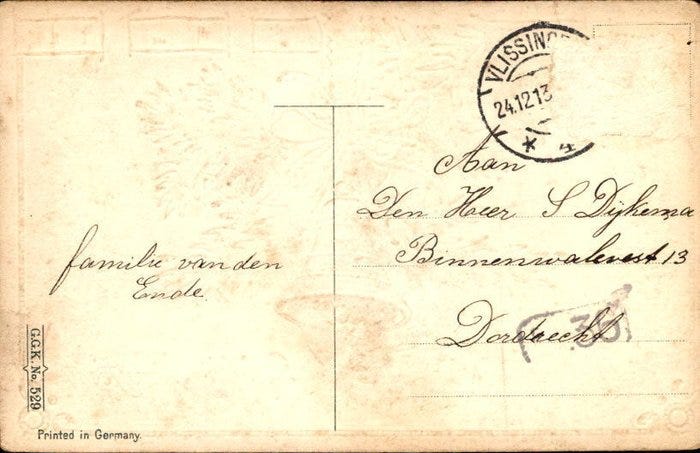 VLISSING
24.12.13
4
Aan
Den Heer S Dijkema
Binnenwalevest 13
Dordrecht
36
familie van den
Ende.
G.G.K. No. 529
Printed in Germany.